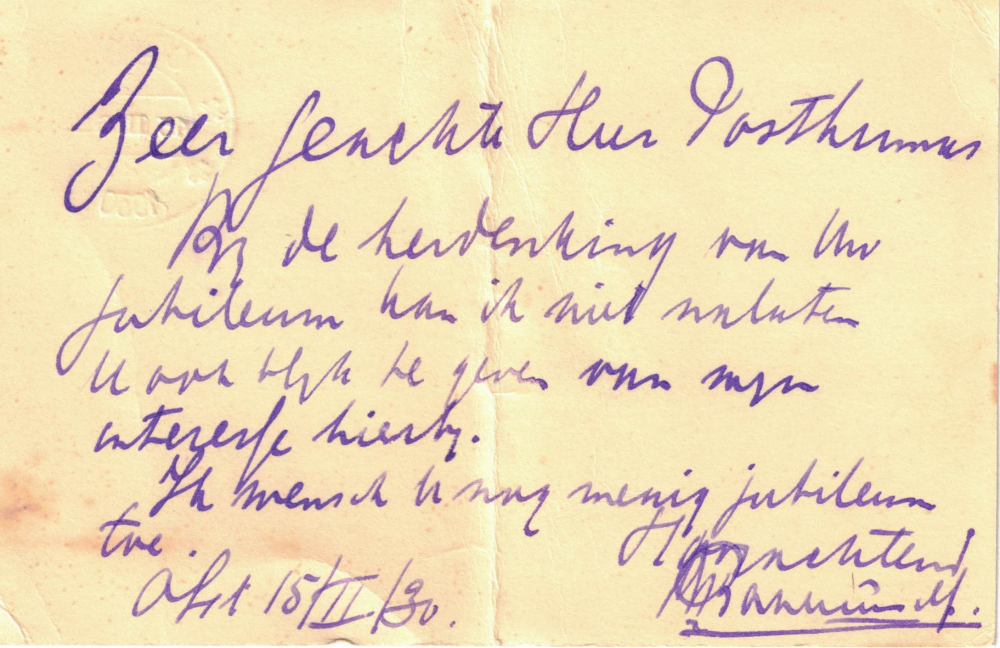 Zeer geachte Heer Posthumus
Bij de herdenking van Uw
jubileum kan ik niet nalaten
U ook blijk te geven van mijn
interesse hierbij.
Ik wensch U nog menig jubileum
toe.
Hoogachtend
15/II/30.